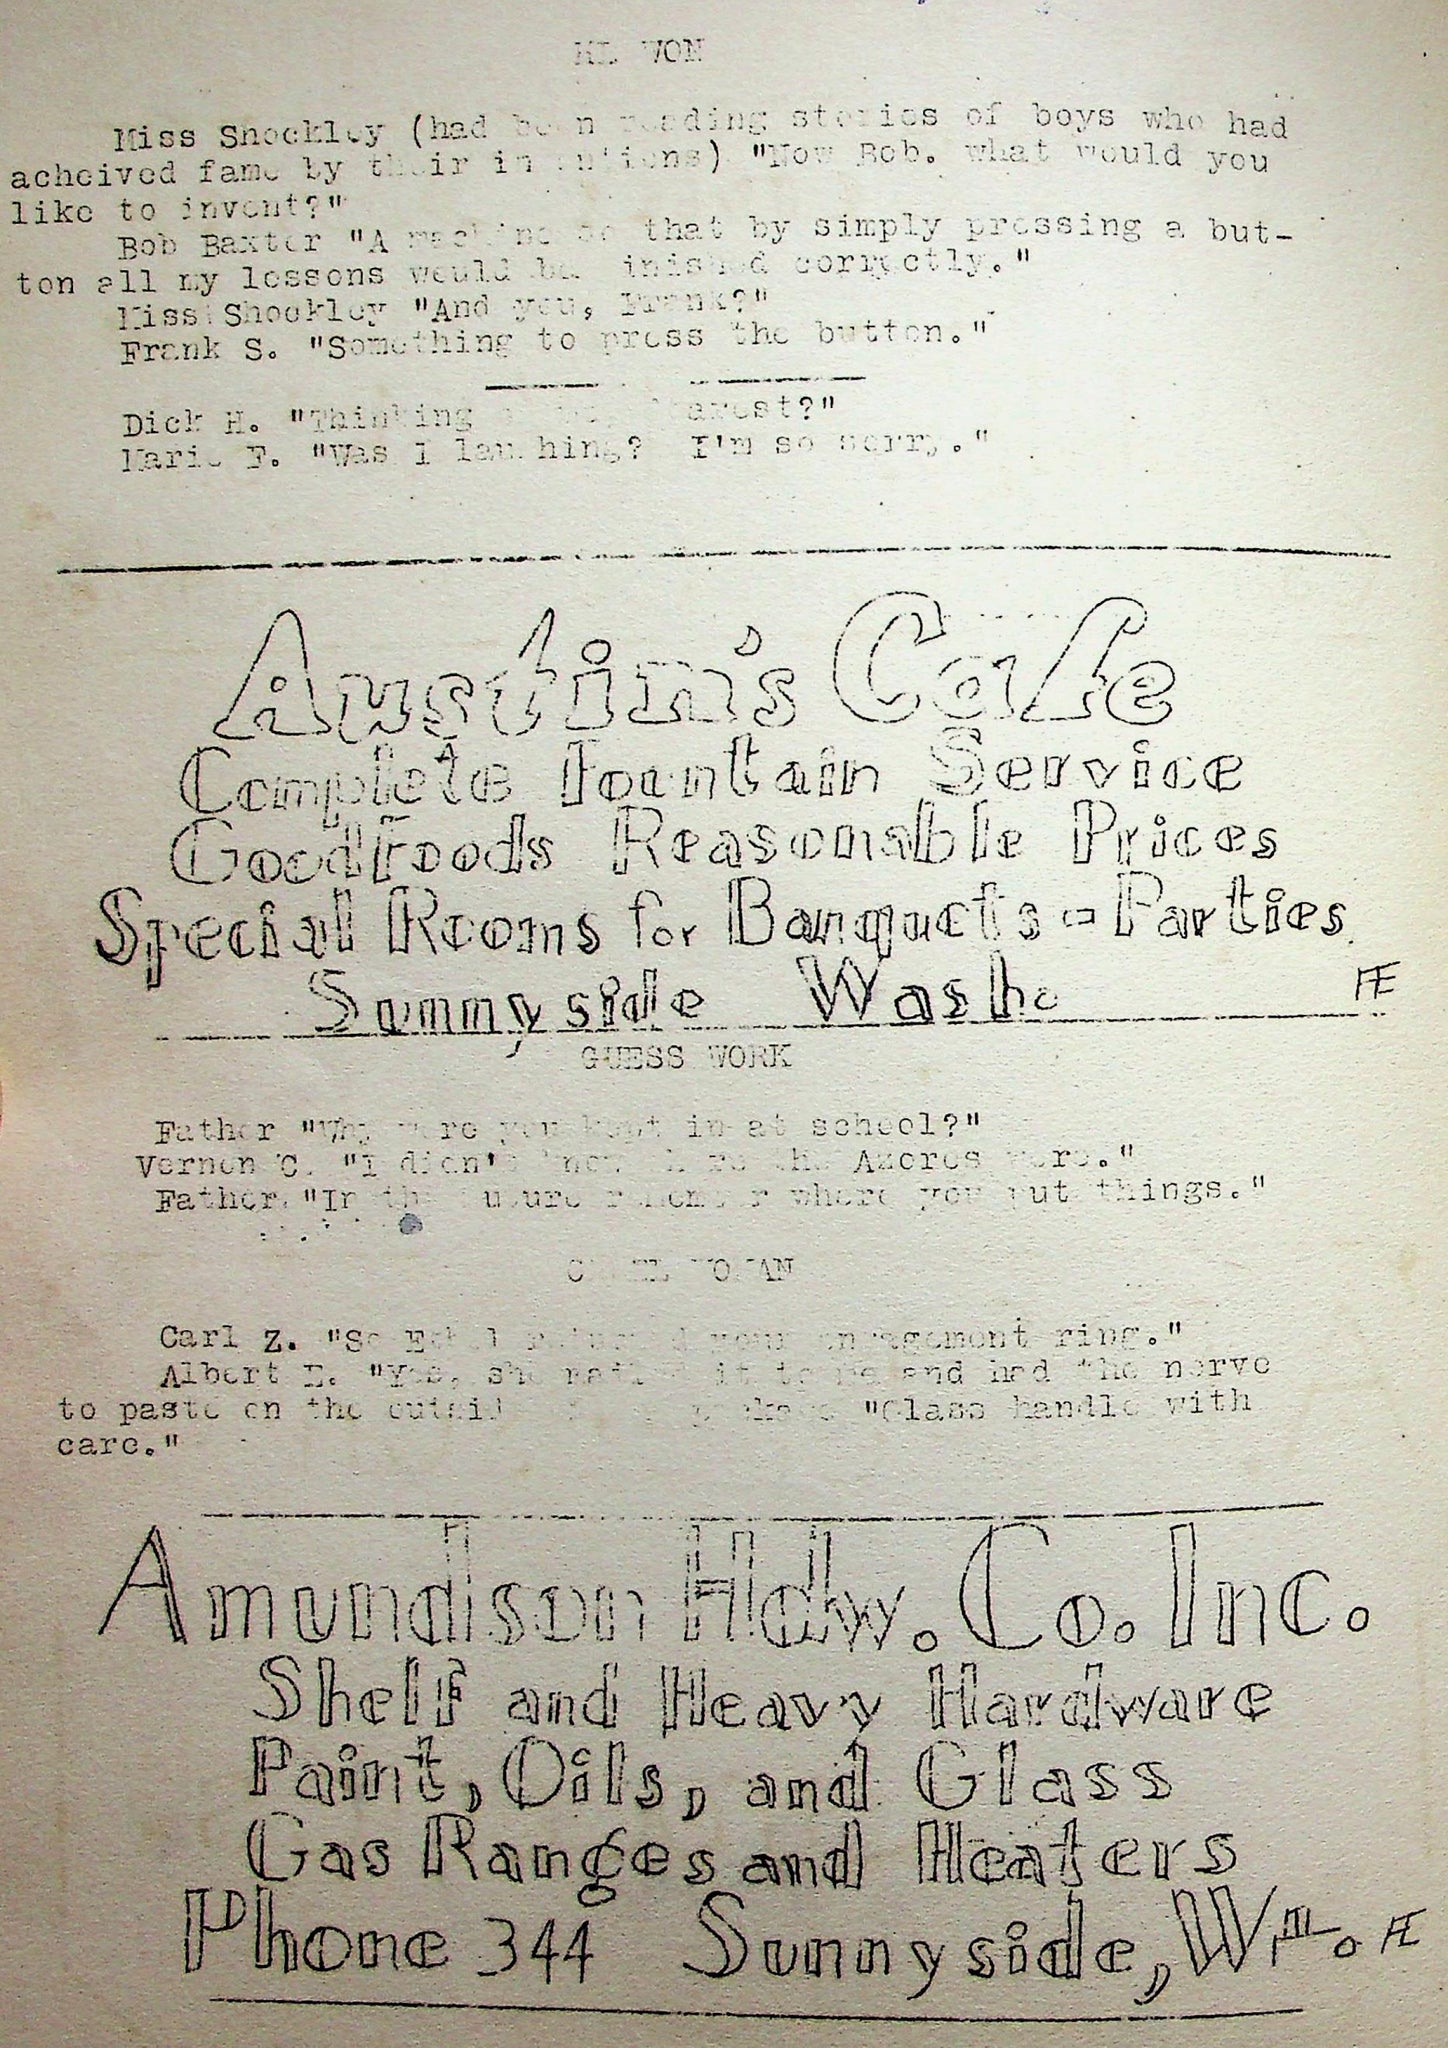 HE WON
Miss Shockley (had been reading stories of boys who had
acheived fame by their inventions) "Now Bob. what would you
like to invent?"
Bob Baxter "A machine so that by simply pressing a but-
ton all my lessons would be finished correctly."
Miss Shockley "And you, Frank?"
Frank S. "Something to press the button."
Dick H. "Thinking of me dearest?"
Marie F. "Was I laughing? I'm so sorry."
Austin's Cafe
Complete Fountain Service
Good Foods Reasonable Prices
Special Rooms for Banquets - Parties
Sunnyside Wash.
FE
GUESS WORK
Father "Why were you kept in at school?"
Vernon C. "I didn't know where the Azores were."
Father "In the future remember where you put things."
CRUEL WOMAN
Carl Z. "So Ethel returned your engagement ring."
Albert E. "Yes, she mailed it to me and had the nerve
to paste on the outside of the package "Glass handle with
care."
Amundson Hdw. Co. Inc.
Shelf and Heavy Hardware
Paint, Oils, and Glass
Gas Ranges and Heaters
Phone 344 Sunnyside, Wn. FE